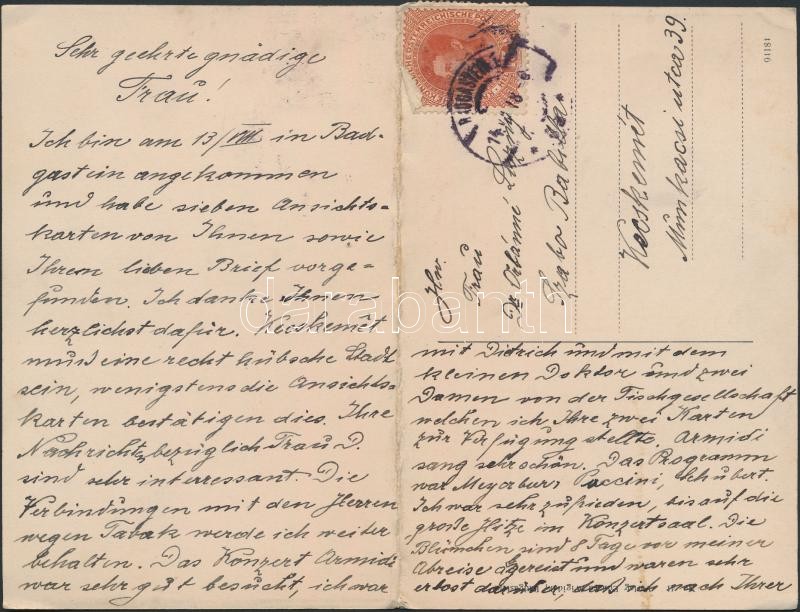 Sehr geehrte gnädige
Frau!
Ich bin am 13/VIII in Bad-
gastein angekommen
und habe sieben Ansichts-
karten von Ihnen sowie
Ihrem lieben Brief vorge-
funden. Ich danke Ihnen
herzlichst dafür. Kecskemét
muß eine recht hübsche Stadt
sein, wenigstens die Ansichts-
karten bestätigen dies. Ihre
Nachrichten bezüglich Frau D.
sind sehr interressant. Die
Verbindungen mit den Herren
wegen Tabak werde ich weiter
behalten. Das Konzert Armidi
war sehr gut besucht, ich war
mit Didrich und mit dem
kleinen Doktor und zwei
Damen von der Tischgesellschaft
welchen ich Ihre zwei Karten
zur Verfügung stellte. Armidi
sang sehr schön. Das Programm
war Meyerbeer, Puccini, Schubert.
Ich war sehr zufrieden, bis auf die
große Hitze im Konzertsaal. Die
Blümchen sind 8 Tage vor meiner
Abreise agereist und waren sehr
erbost darüber, daß ich nach Ihrer
Frau
Dr. Orbánné
Szabo
Kecskemét
Munkácsi utca 39.
18116
darabanth